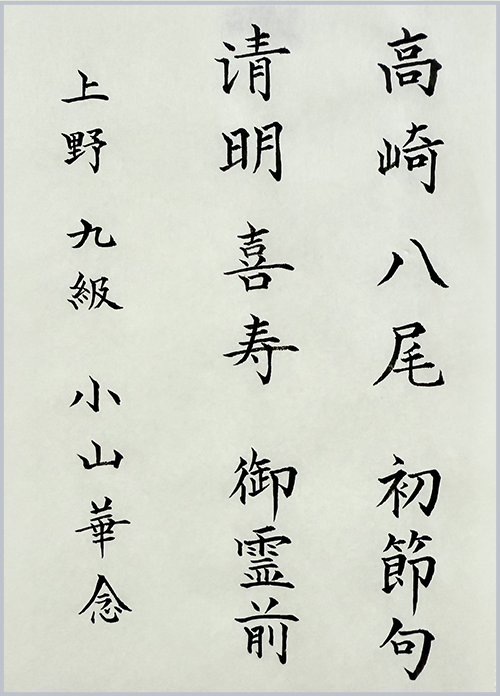 高崎 八尾 初節句
请明 喜寿 御霊前
上野 九級 小山華念